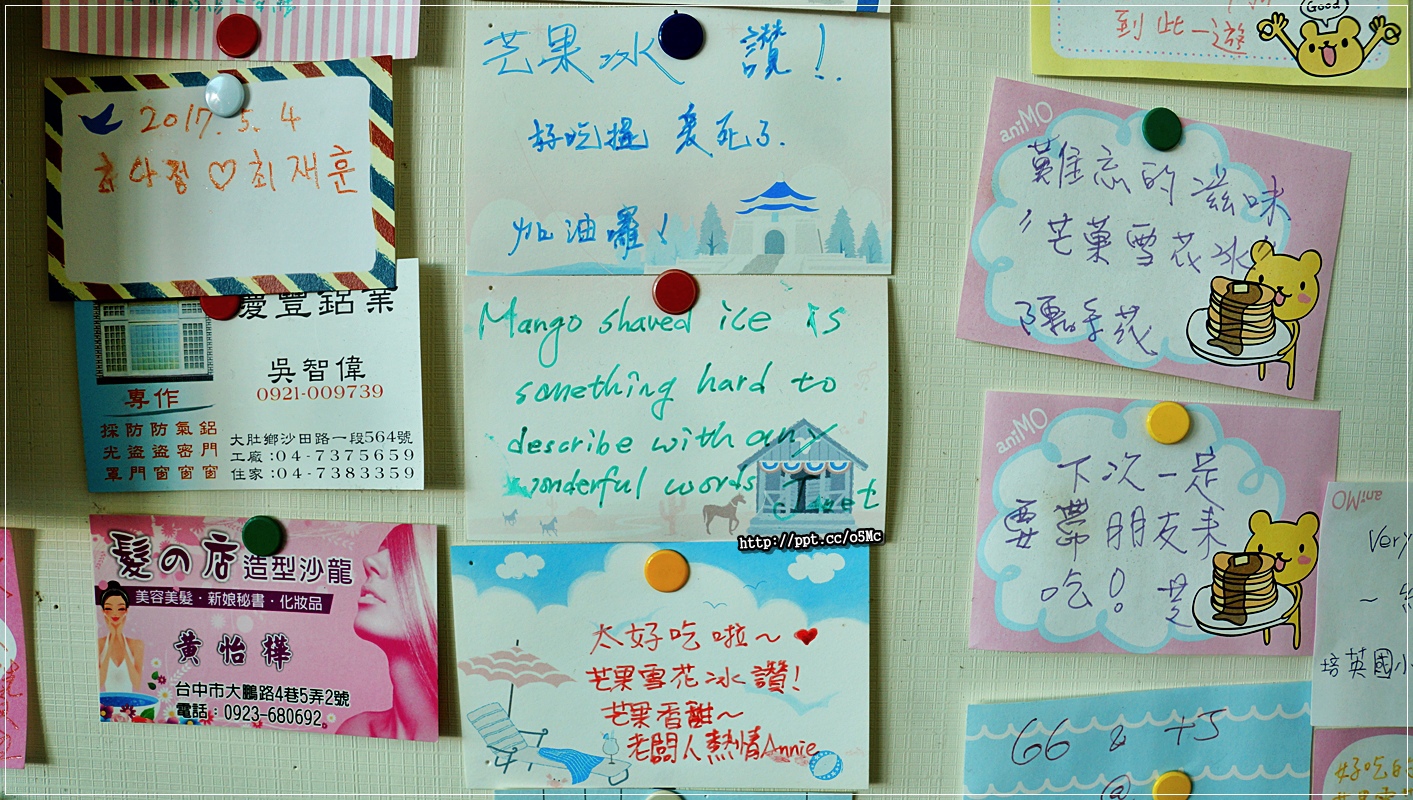 2017.5.4
최다정♡최재훈
慶豐鋁業
吳智偉
0921-009739
專作
採防防氣鋁
光盜盜密門
罩門窗窗窗
大肚鄉沙田路一段564號
工廠:04-7375659
住家:04-7383359
髮の店造型沙龍
美容美髮·新娘秘書·化妝品
黃怡樺
台中市大鵬路4巷5弄2號
電話:0923-680692
芒果冰 讚!
好吃 愛死了.
加油囉!
Mango shaved ice is
something hard to
describe with any
wonderful words
http://ppt.cc/o5Mc
太好吃啦~♥
芒果雪花冰讚!
芒果香甜~
老闆人熱情Annie
Good
到此一遊
aniMO
難忘的滋味
"芒菓雪花冰"
aniMO
下次一定
要帶朋友來
吃!
aniMO
Very
培英國小
66 & 45
@
#好吃的